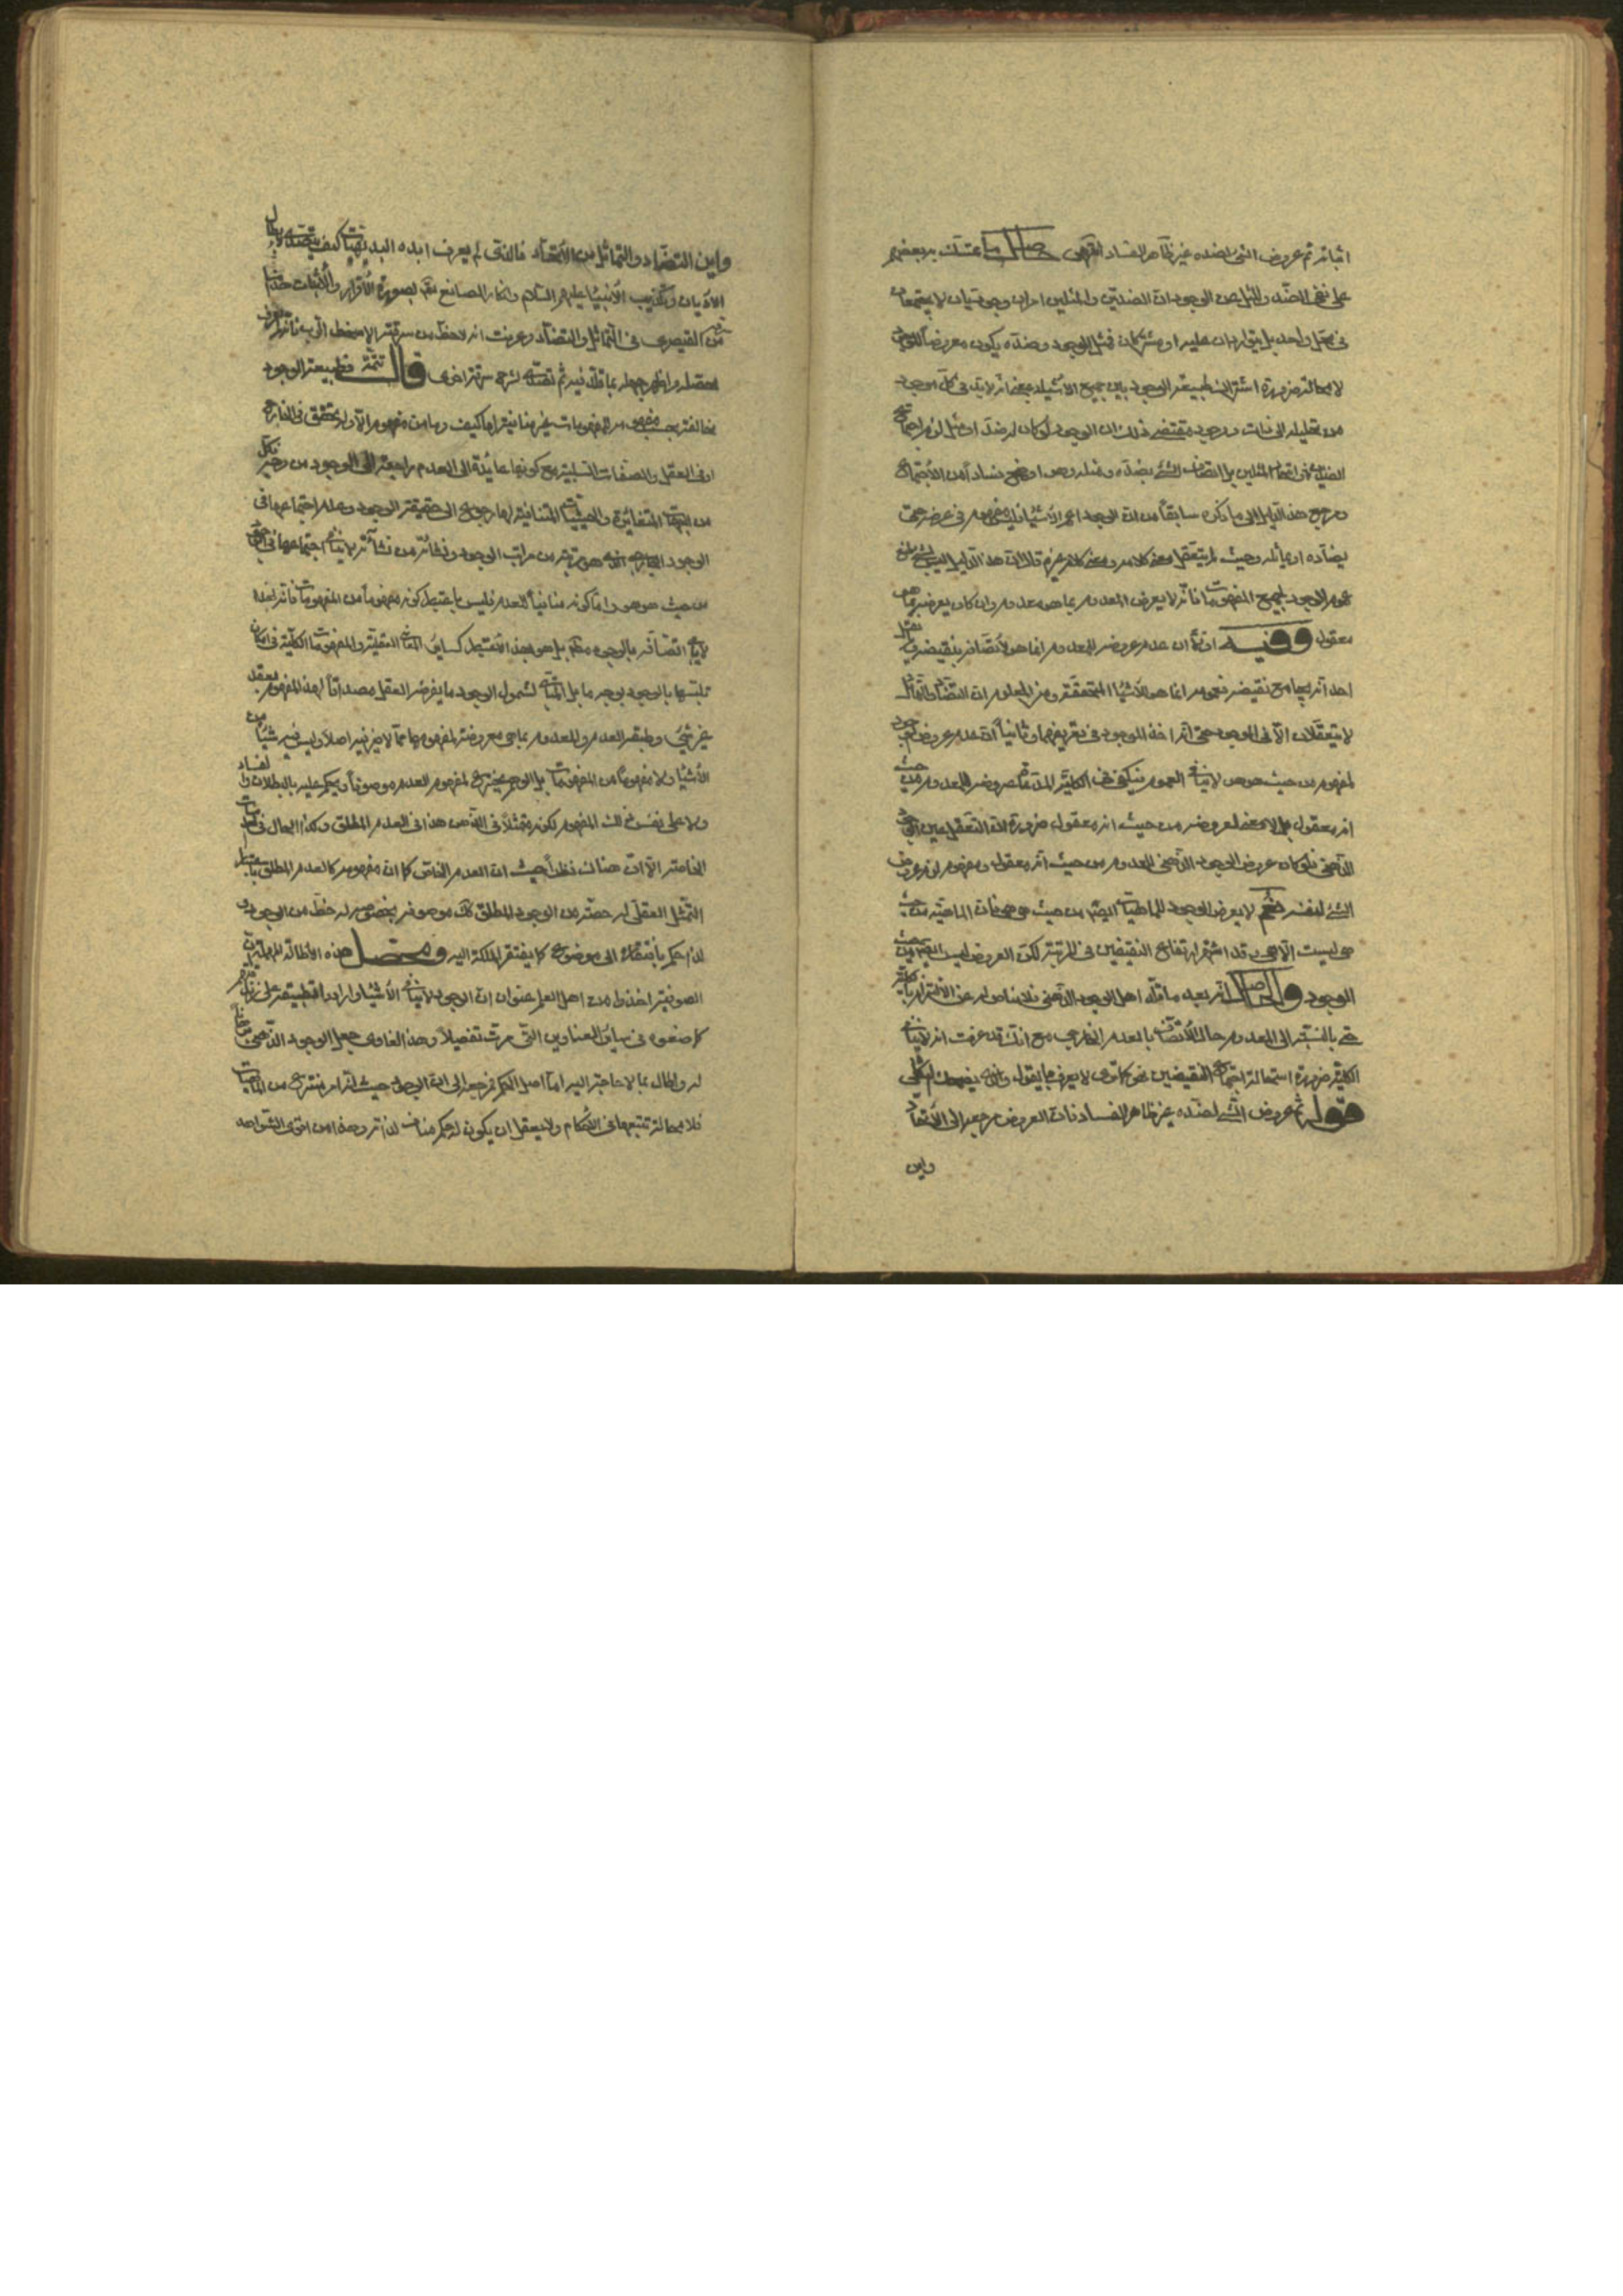 اثباته ثم عروض الشئ لضده غير ظاهر الفساد انتهى حاصل ما تمسك به بعضهم
على نفى الضد والمثل عن الوجود ان الضدين والمثلين امران وجوديان لا يجتمعان
فى محل واحد بل يتواردان عليه او مشتركان فمثل الوجود وضده يكون معروضاً للوجود
لا محالة ضرورة اشتراك طبيعة الوجود بين جميع الأشياء بمعنى انه لابد فى كل موجود
من تحليله الى ذات ووجود مقتضى ذلك ان الوجود لو كان له ضد او مثل لزم اجتماع
الضدين او اجتماع المثلين بل اتصاف الشئ بضده ومثله وهو اوضح فساداً من الأجتماع
ومرجع هذا الدليل الى ما ذكره سابقاً من ان الوجود اعم الأشياء فليس مفهوم فى عرضه حتى
يضاده او يماثله وحيث لم يتعقل معنى كلامه ومعنى كلام غيره قال ان هذا الدليل
عموم الوجود لجميع المفهومات فانه لا يعرض المعدوم بما هو معدوم وان كان يعرضه بما هو
معقول وفيه اولاً ان عدم عروضه للمعدوم انما هو لأتصافه بنقيضه
احد انه يجامع نقيضه فعمومه انما هو للأشياء المتحققة ومن المعلوم ان التضاد والتماثل
لا يتعقلان الا فى الموجود حتى انه اخذ الموجود فى تعريفهما وثانياً ان عدم عروض الوجود
لمفهوم من حيث هو هو لا ينافى العموم فيكفى فى الكلية المدعاة عروضه للمعدوم من حيث
انه معقول بل لا معنى لعروضه من حيث انه معقول ضرورة ان التعقل عين الوجود
الذهنى فلو كان عروض الوجود الذهنى للمعدوم من حيث انه معقول ومفهوم لزم عروض
الشئ لنفسه نعم لا يعرض الوجود للماهيات ايضاً من حيث هى هى فان الماهية من حيث
هى ليست الا هى وقد اشتهر ارتفاع النقيضين فى المرتبة لكن العروض ليس ايضاً من حيث
الوجود والحاصل انه بعد ما قاله اهل الوجود الذهنى فلا مناص له عن الألتزام بالكلية
حتى بالنسبة الى المعدوم حال الأتصاف بالعدم الخارجى مع انك قد عرفت انه لا ينافى
الكلية ضرورة استحالة اجتماع النقيضين نحو كما ترى لا يعرف ما يقول
قوله ثم عروض الشئ لضده غير ظاهر الفساد فان العروض مرجعه الى الأتحاد
واين
واين التضاد والتماثل من الأتحاد فالذى لم يعرف ابده البديهيات كيف يتصدى لأبطال
الأديان وتكذيب الأنبياء عليهم السلام وانكار الصانع تعالى بصورة الأقرار والأثبات
من القيصرى فى التماثل والتضاد وعرفت انه لاحظ من سرقته الا
لحقته واظهر جهله بما قال فيه ثم تصدى لشرح سرقة اخرى قال تتمة فطبيعة الوجود
مخالفته بحسب مفهومه للمفهومات غير منافية لها كيف وما من مفهوم الا وله تحقق فى الخارج
او فى العقل والصفات السلبية مع كونها عائدة الى العدم راجعة الى الوجود من وجه فكل
من الجهات المتغايرة والحيثيات المتنافية لها رجوع الى حقيقة الوجود وعدم اجتماعها فى
الوجود الخارجى الذى هو مرتبة من مراتب الوجود ونشأة من نشأته لا ينافى اجتماعها فى الوجود
من حيث هو هو واما كونه منافياً للعدم فليس باعتبار كونه مفهوماً من المفهومات فانه بهذا
لا يأبى اتصافه بالوجود مطلقاً بل هو بهذا الأعتبار كسائر المعانى العقلية والمفهومات الكلية فى امكان
تلبسها بالوجود بوجه ما بل المنافى لشمول الوجود ما يفرض العقل مصداقاً لهذا المفهوم بعقد
غير بتى وطبيعة العدم والمعدوم بما هى معروضة لمفهومهما مما لا خبر فيه اصلاً وليس هى شيئاً من
الأشياء ولا مفهوماً من المفهومات بل الوهم يخترع لمفهوم العدم موصوفاً ويحكم عليه بالبطلان والفساد
ولا على نفس ذلك المفهوم لكونه متمثلاً فى الذهن هذا فى العدم المطلق وكذا الحال فى
الخاصة الا ان هناك نظراً حيث ان العدم الخاص كما ان مفهومه كالعدم المطلق باعتبار
التمثل العقلى له حصة من الوجود المطلق كذلك موصوفه بخصوصه له حظ من الوجود و
لذا حكم بأفتقاره الى موضوع كما يفتقر الملكة اليه ومحصل هذه الأطالة المملة ان
الصوفية اخذوا من اهل العلم عنوان ان الوجود لا ينافى الأشياء وارادوا تطبيقه على
كما صنعوه فى سائر العناوين التى مرت تفصيلاً وهذا الغاوى جعل الوجود الذهنى
له واطال بما لا حاجة اليه اما اصل الحكم فمرجعه الى ان الوجود حيث انه امر منتزع من الماهيات
فلا محالة تتبعها فى الأحكام ولا يعقل ان يكون له حكم مناف لذاته وهذا من اقوى الشواهد